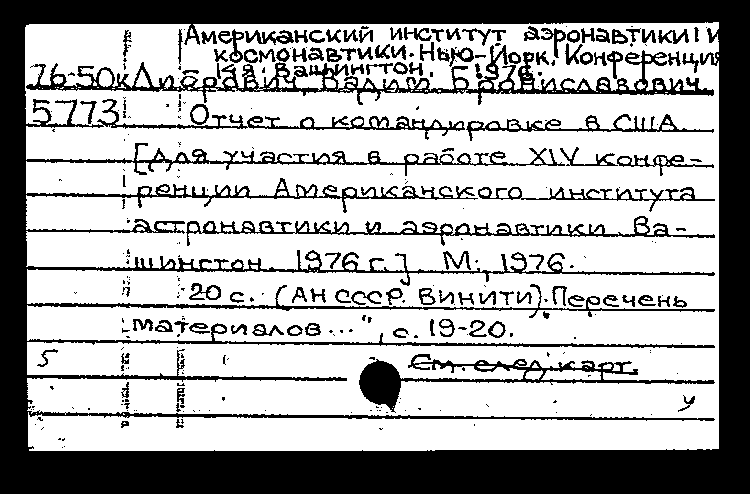 Американский институт аэронавтики и
космонавтики. Нью-Йорк. Конференция
14-я. Вашингтон. 1976.
76-50к Либрович, Вадим Брониславович.
5773 Отчет о командировке в США
[для участия в работе XIV конфе-
ренции Американского института
астронавтики и аэронавтики. Ва-
шингтон. 1976 г.]. М., 1976.
20 с. (АН СССР. ВИНИТИ). "Перечень
материалов...", с. 19-20.
5 См. след. карт.
у